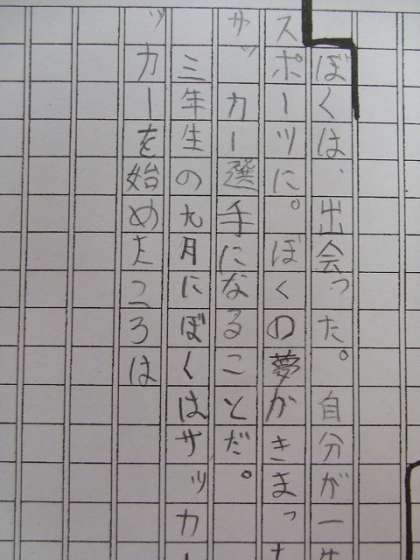 ぼくは、出会った。自分が一生
スポーツに。ぼくの夢がきまった
サッカー選手になることだ。
三年生の九月にぼくはサッカー
ッカーを始めたころは